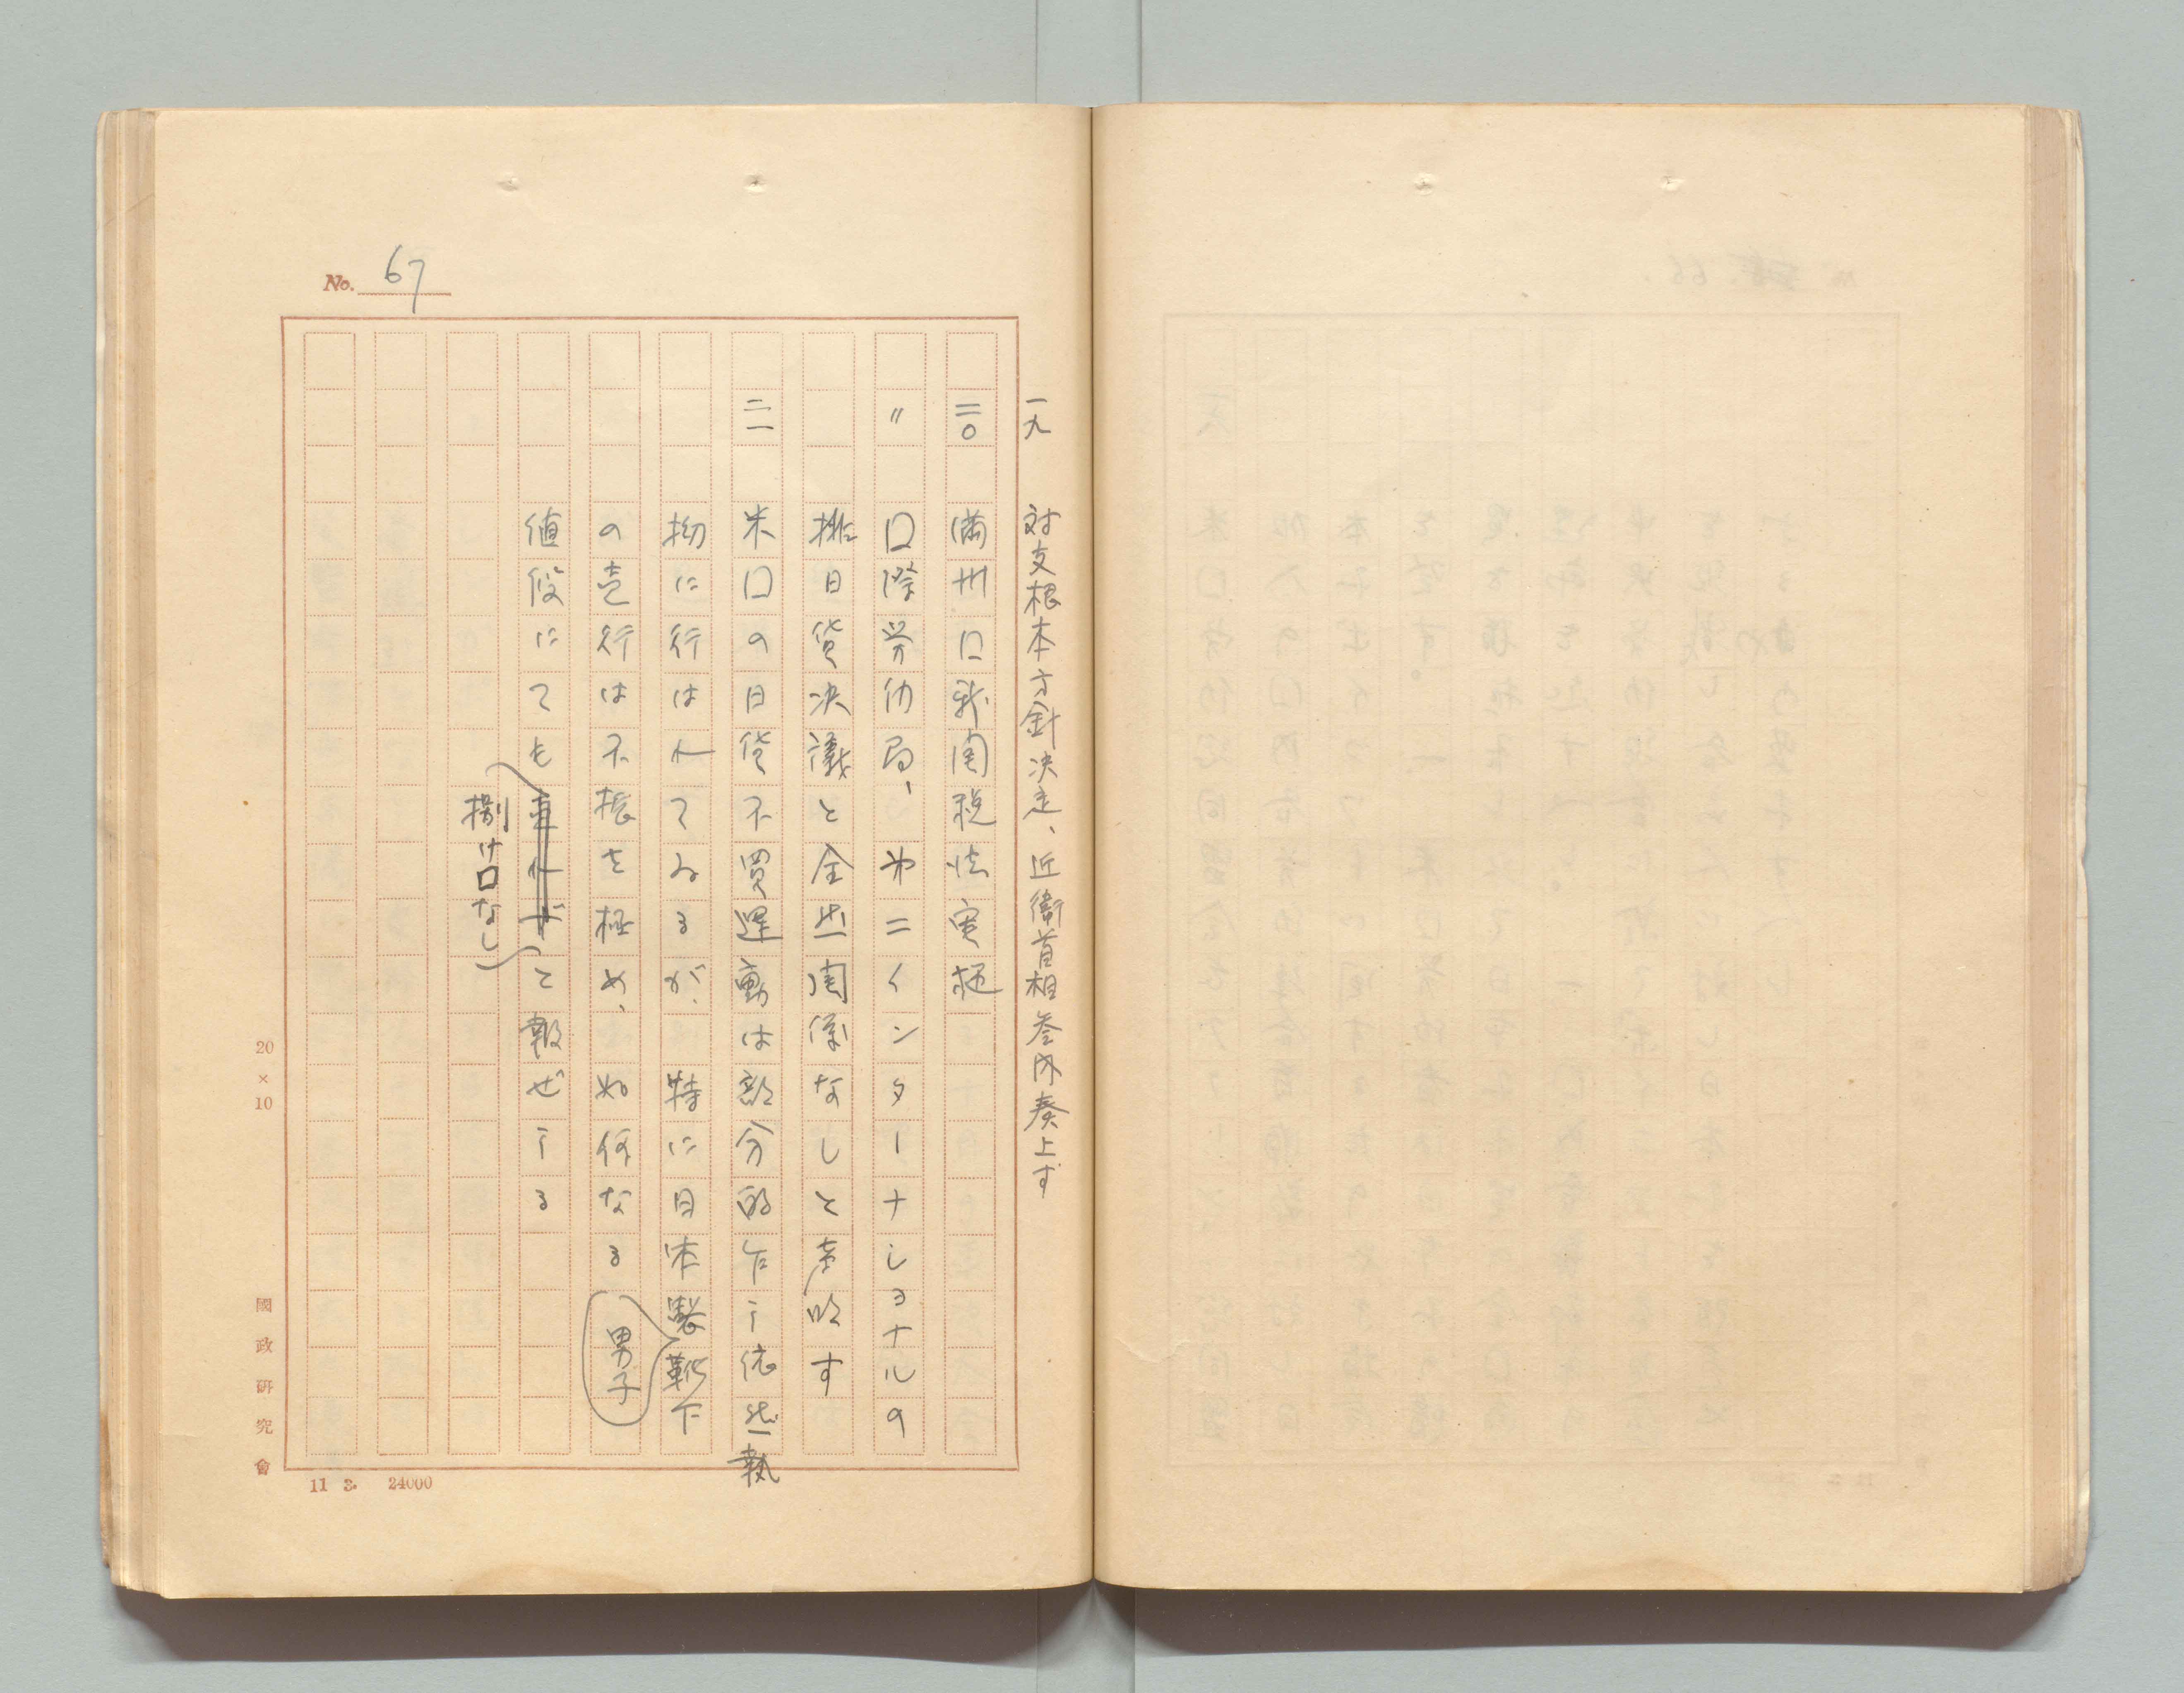 No. 67
一九 対支根本方針決定、近衛首相参内奏上す
二〇 満州口新関税法実施
〃 口際労仂局、㐧二インターナショナルの
排日貨決議と全然関係なしと声明す
二一 米口の日貨不買運動は部分的乍ら依然執
拗に行はれてゐるが、特に日本製靴下
男子
の売行は不振を極め、如何なる
値段にても
捌け口なし
と報ぜらる
20×10
國政研究會
11 3. 24000